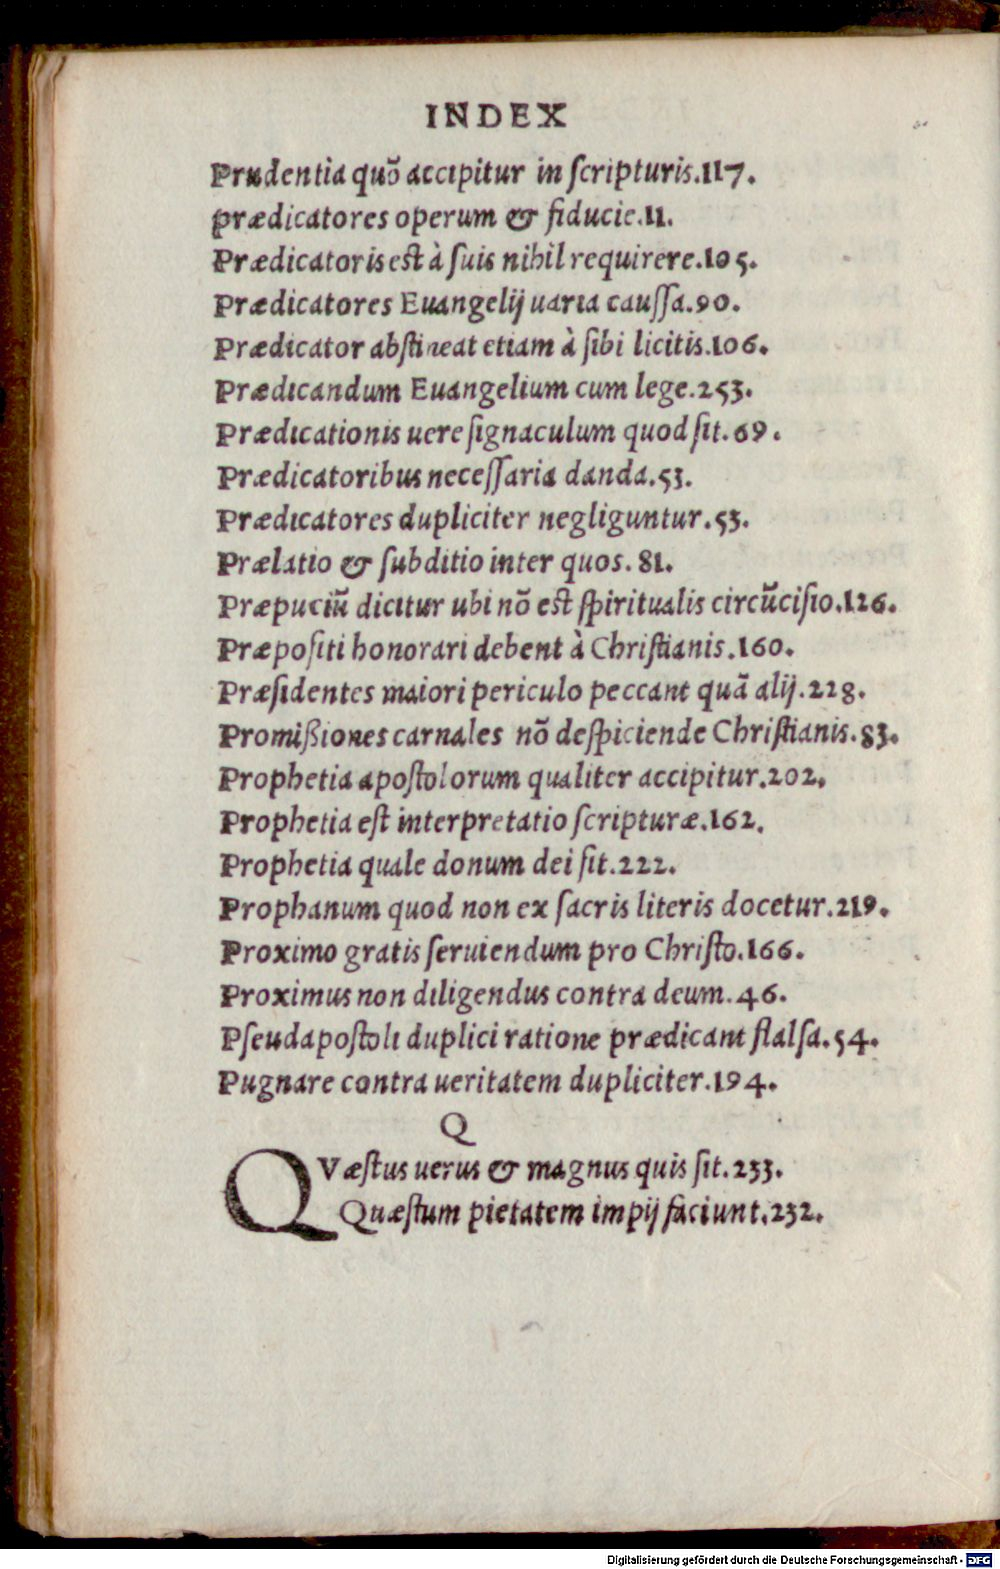 INDEX
Prudentia quõ accipitur in ſcripturis.117.
prædicatores operum & fiducie.11.
Prædicatoris est à ſuis nihil requirere.105.
Prædicatores Euangelij uaria cauſſa.90.
Prædicator abſtineat etiam à ſibi licitis.106.
Prædicandum Euangelium cum lege.253.
Prædicationis uere ſignaculum quod ſit.69.
Prædicatoribus neceſſaria danda.53.
Prædicatores dupliciter negliguntur.53.
Prælatio & ſubditio inter quos.81.
Præpuciũ dicitur ubi nõ est ſpiritualis circũciſio.126.
Præpoſiti honorari debent à Chriſtianis.160.
Præſidentes maiori periculo peccant quã alij.228.
Promißiones carnales nõ deſpiciende Chriſtianis.83.
Prophetia apoſtolorum qualiter accipitur.202.
Prophetia eſt interpretatio ſcripturæ.162.
Prophetia quale donum dei ſit.222.
Prophanum quod non ex ſacris literis docetur.219.
Proximo gratis ſeruiendum pro Chriſto.166.
Proximus non diligendus contra deum.46.
Pſeudapoſtoli duplici ratione prædicant flalſa.54.
Pugnare contra ueritatem dupliciter.194.
Q
QVæſtus uerus & magnus quis ſit.233.
Quæſtum pietatem impij faciunt.232.
Digitalisierung gefördert durch die Deutsche Forschungsgemeinschaft - DFG